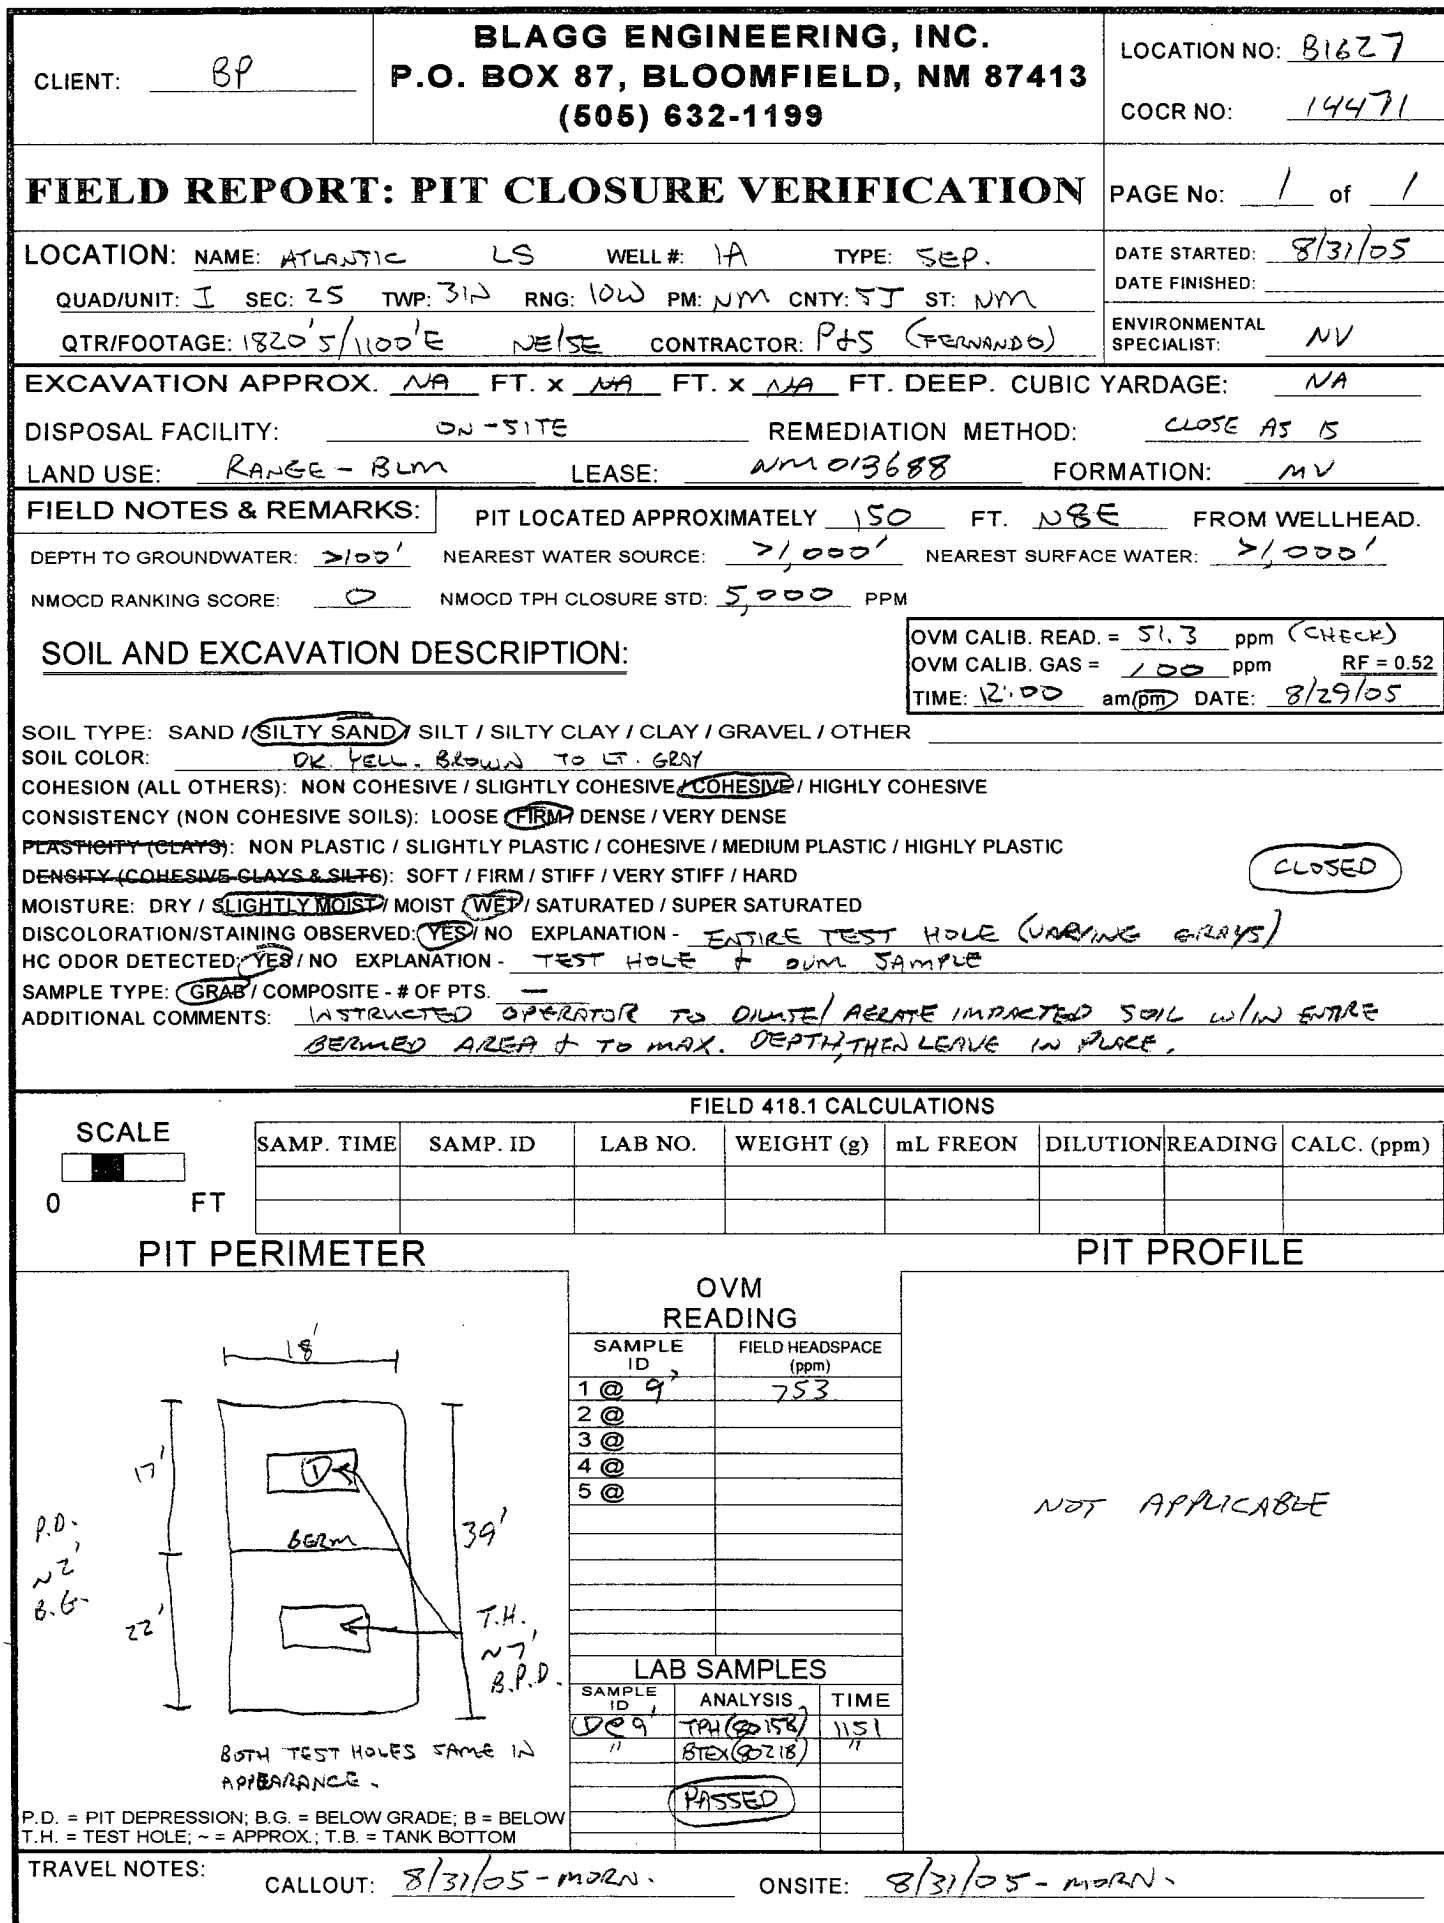 CLIENT: BP
BLAGG ENGINEERING, INC.
P.O. BOX 87, BLOOMFIELD, NM 87413
(505) 632-1199
LOCATION NO: B1627
COCR NO: 14471
FIELD REPORT: PIT CLOSURE VERIFICATION
PAGE No: 1 of 1
LOCATION: NAME: ATLANTIC LS WELL #: 1A TYPE: SEP.
QUAD/UNIT: I SEC: 25 TWP: 31N RNG: 10W PM: NM CNTY: SJ ST: NM
QTR/FOOTAGE: 1820'S/1100'E NE/SE CONTRACTOR: P+S (FERNANDO)
DATE STARTED: 8/31/05
DATE FINISHED:
ENVIRONMENTAL
SPECIALIST: NV
EXCAVATION APPROX. NA FT. x NA FT. x NA FT. DEEP. CUBIC YARDAGE: NA
DISPOSAL FACILITY: ON-SITE REMEDIATION METHOD: CLOSE AS IS
LAND USE: RANGE - BLM LEASE: NM013688 FORMATION: MV
FIELD NOTES & REMARKS: PIT LOCATED APPROXIMATELY 150 FT. N8E FROM WELLHEAD.
DEPTH TO GROUNDWATER: >100' NEAREST WATER SOURCE: >1,000' NEAREST SURFACE WATER: >1,000'
NMOCD RANKING SCORE: 0 NMOCD TPH CLOSURE STD: 5,000 PPM
SOIL AND EXCAVATION DESCRIPTION:
OVM CALIB. READ. = 51.3 ppm (CHECK)
OVM CALIB. GAS = 100 ppm RF = 0.52
TIME: 12:00 am/pm DATE: 8/29/05
SOIL TYPE: SAND / SILTY SAND / SILT / SILTY CLAY / CLAY / GRAVEL / OTHER
SOIL COLOR: DK. YELL. BROWN TO LT. GRAY
COHESION (ALL OTHERS): NON COHESIVE / SLIGHTLY COHESIVE / COHESIVE / HIGHLY COHESIVE
CONSISTENCY (NON COHESIVE SOILS): LOOSE / FIRM / DENSE / VERY DENSE
PLASTICITY (CLAYS): NON PLASTIC / SLIGHTLY PLASTIC / COHESIVE / MEDIUM PLASTIC / HIGHLY PLASTIC
DENSITY (COHESIVE CLAYS & SILTS): SOFT / FIRM / STIFF / VERY STIFF / HARD
CLOSED
MOISTURE: DRY / SLIGHTLY MOIST / MOIST / WET / SATURATED / SUPER SATURATED
DISCOLORATION/STAINING OBSERVED: YES / NO EXPLANATION - ENTIRE TEST HOLE (VARYING GRAYS)
HC ODOR DETECTED: YES / NO EXPLANATION - TEST HOLE + OVM SAMPLE
SAMPLE TYPE: GRAB / COMPOSITE - # OF PTS. —
ADDITIONAL COMMENTS: INSTRUCTED OPERATOR TO DILUTE/AERATE IMPACTED SOIL W/IN ENTIRE
BERMED AREA + TO MAX. DEPTH, THEN LEAVE IN PLACE.
FIELD 418.1 CALCULATIONS
SCALE
0 FT
SAMP. TIME SAMP. ID LAB NO. WEIGHT (g) mL FREON DILUTION READING CALC. (ppm)
PIT PERIMETER
PIT PROFILE
18'
17'
BERM
39'
P.D.
~2'
B.G.
22'
T.H.
~7'
B.P.D.
1
BOTH TEST HOLES SAME IN
APPEARANCE.
P.D. = PIT DEPRESSION; B.G. = BELOW GRADE; B = BELOW
T.H. = TEST HOLE; ~ = APPROX.; T.B. = TANK BOTTOM
OVM
READING
SAMPLE ID FIELD HEADSPACE (ppm)
1 @ 9' 753
2 @
3 @
4 @
5 @
LAB SAMPLES
SAMPLE ID ANALYSIS TIME
1@9' TPH(8015B) 1151
" BTEX(8021B) "
PASSED
NOT APPLICABLE
TRAVEL NOTES: CALLOUT: 8/31/05 - MORN. ONSITE: 8/31/05 - MORN.